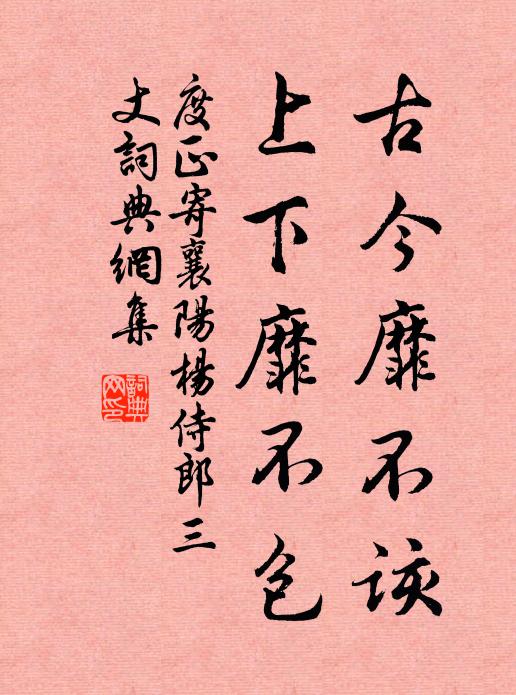 古今靡不該
上下靡不包
度正寄襄陽楊侍郎三
丈詞典網集
詞典
网印